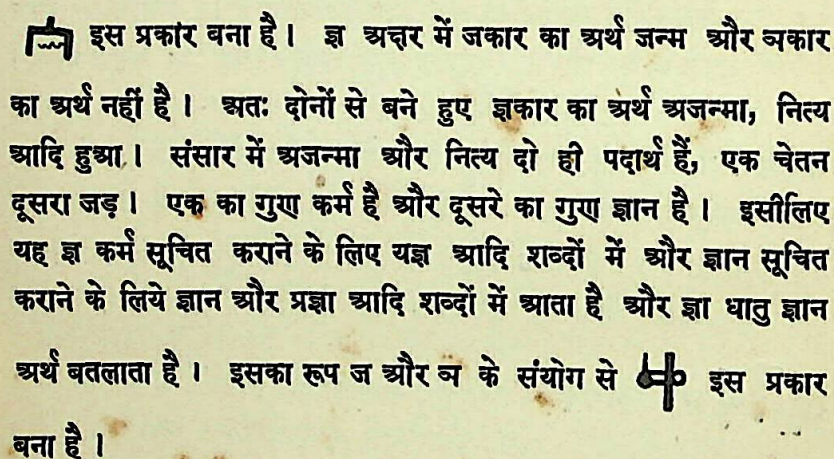 इस प्रकार बना है। ज्ञ अक्षर में जकार का अर्थ जन्म और ञकार
का अर्थ नहीं है। अतः दोनों से बने हुए ज्ञकार का अर्थ अजन्मा, नित्य
आदि हुआ। संसार में अजन्मा और नित्य दो ही पदार्थ हैं, एक चेतन
दूसरा जड़। एक का गुण कर्म है और दूसरे का गुण ज्ञान है। इसीलिए
यह ज्ञ कर्म सूचित कराने के लिए यज्ञ आदि शब्दों में और ज्ञान सूचित
कराने के लिये ज्ञान और प्रज्ञा आदि शब्दों में आता है और ज्ञा धातु ज्ञान
अर्थ बतलाता है। इसका रूप ज और ञ के संयोग से इस प्रकार
बना है।